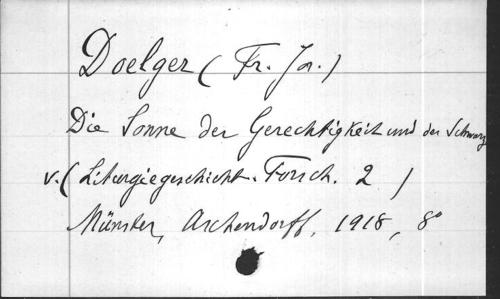 Doelger (Fr. Jos.)
Die Sonne der Gerechtigkeit und der Schwarze
v. (Liturgiegeschicht. Forsch. 2)
Münster, Aschendorff, 1918, 8°